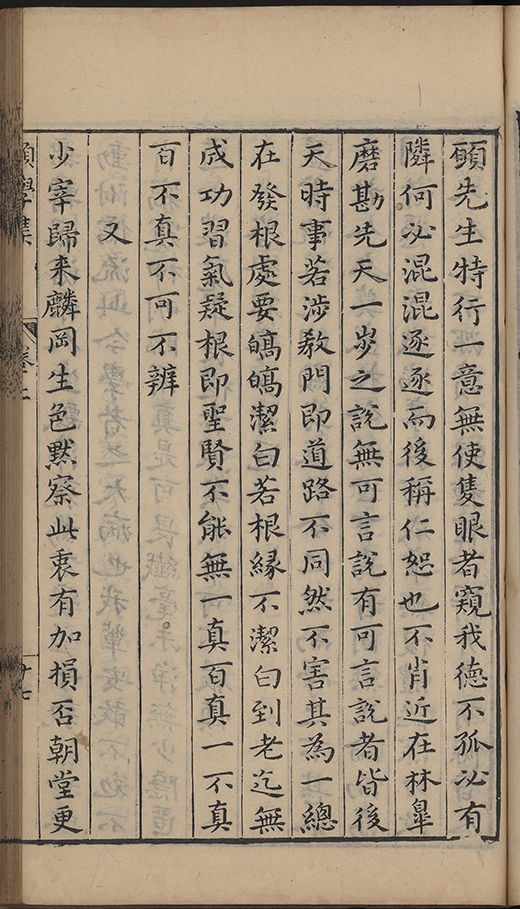 願先生特行一意無使隻眼者窺我德不孤必有
隣何必混混逐逐而後稱仁恕也不肖近在林皐
磨勘先天一步之說無可言說有可言說者皆後
天時事若涉教門即道路不同然不害其為一總
在發根處要皜皜潔白若根緣不潔白到老迄無
成功習氣疑根即聖賢不能無一真百真一不真
百不真不可不辨
又
少宰歸来麟岡生色黙察此衷有加損否朝堂更
願學集
卷之二
十七